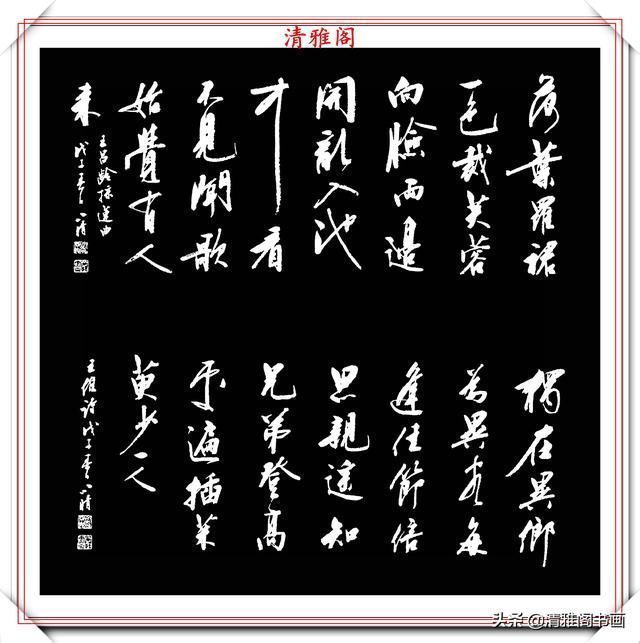 清雅阁
荷葉羅裙
一色裁芙蓉
向臉兩邊
開亂入池
中看
不見聞歌
始覺有人
来
王昌齡採蓮曲
戊子夏
獨在異鄉
為異客每
逢佳節倍
思親遥知
兄弟登高
處遍插茱
萸少一人
王維詩戊子夏
头条 @清雅阁书画